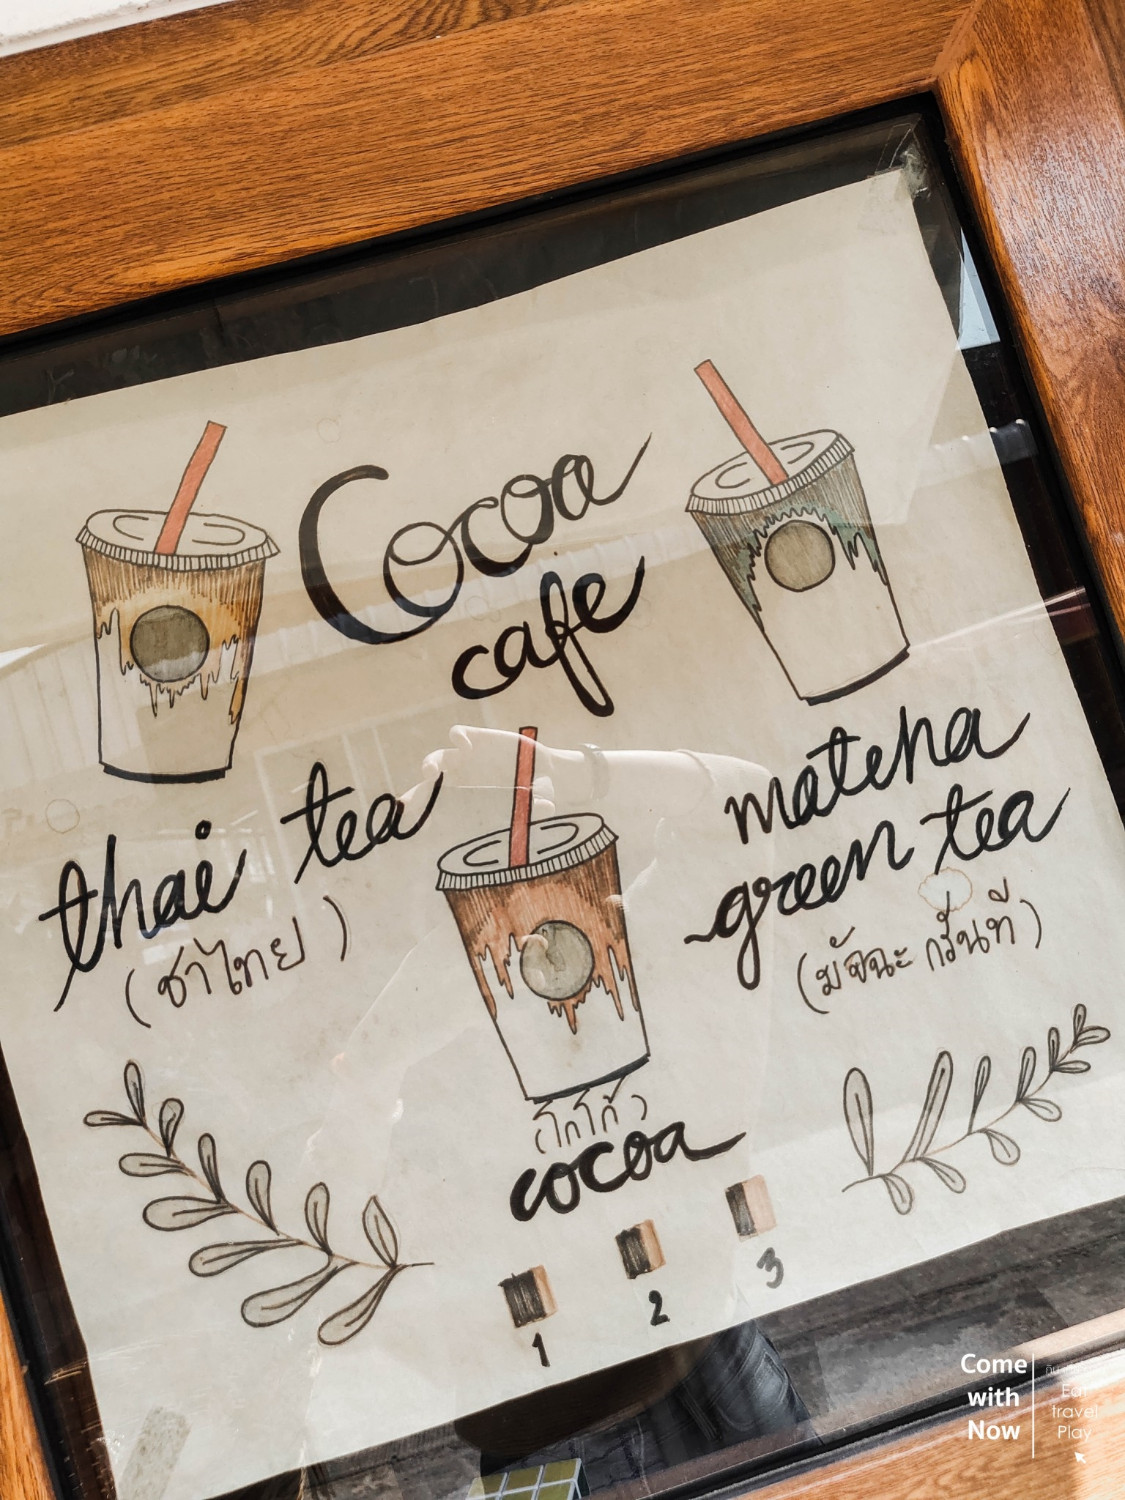 Cocoa
cafe
thai tea
(ชาไทย)
matcha
green tea
(มัจฉะ กรีนที)
(โกโก้)
cocoa
1
2
3
Come
with
Now
Eat
travel
Play